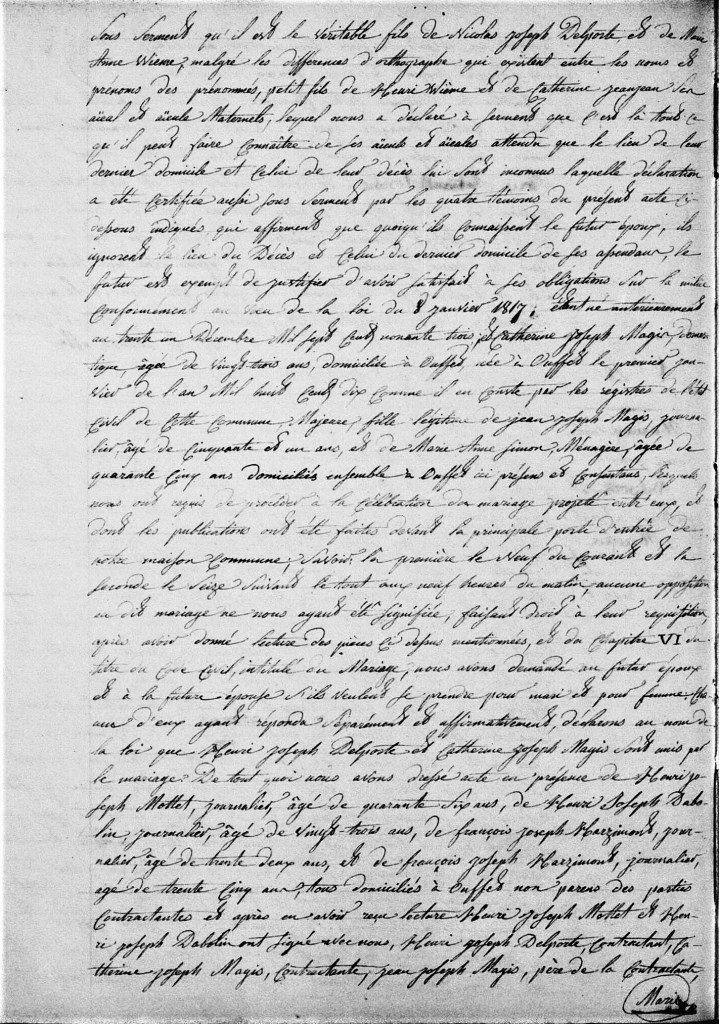 Sous Serment qu'il est le Véritable fils de Nicolas Joseph Delporte et de Marie
Anne Wième, malgré les différences d'orthographe qui existent entre les noms et
prénoms des prénommés, petit fils de Henri Wième et de Catherine jeanjean Ses
aïeul et aïeule Maternels, lequel nous a déclaré à serment que C'est là tout ce
qu'il peut faire Connaître de ses aïeuls et aïeules attendu que le lieu de leur
dernier domicile et Celui de leur décès lui Sont inconnus laquelle déclaration
a été Certifiée aussi sous Serment par les quatre témoins du présent acte ci
dessous indiqués, qui affirment que quoiqu'ils Connaissent le futur époux, ils
ignorent le lieu du Décès et Celui du dernier domicile de ses assendans, le
futur est exempt de justifier d'avoir Satisfait à ses obligations Sur la milice
Conformément au vœu de la loi du 8 janvier 1817, étant né antérieurement
au trente un Décembre Mil Sept Cent nonante trois; et Catherine Joseph Magis, domes
tique, âgée de Vingt trois ans, domiciliée à Ouffet, née à Ouffet le premier jan-
vier de l'an Mil huit Cent dix Comme il en Conste par les registres de l'état
Civil de Cette Commune, Majeure, fille légitime de jean Joseph Magis, journa-
lier, âgé de Cinquante et un ans, et de Marie Anne Simon, Ménagère, âgée de
quarante Cinq ans domiciliés ensemble à Ouffet ici présens et Consentans, lesquels
nous ont requis de procéder à la Célébration du mariage projeté entr'eux, et
dont les publications ont été faites devant la principale porte d'entrée de
notre maison Commune; Savoir: la première le Neuf du Courant et la
Seconde le Seize Suivant le tout aux neuf heures du matin, aucune opposition
au dit mariage ne nous ayant été Signifiée, faisant droit à leur requisition,
après avoir donné lecture des pièces Ci dessus mentionnées, et du Chapitre VI du
titre du Code Civil, intitulé du Mariage, nous avons demandé au futur époux
et à la future épouse S'ils veulent Se prendre pour mari et pour femme; cha-
cun d'eux ayant répondu Séparément et affirmativement, déclarons au nom de
la loi que Henri Joseph Delporte et Catherine Joseph Magis Sont unis par
le mariage. De tout quoi nous avons dressé acte en présence de Henri jo-
seph Mottet, journalier, âgé de quarante Six ans, de Henri Joseph Dabo-
lin, journalier, âgé de Vingt-trois ans, de françois Joseph Harzimont, jour-
nalier, âgé de trente deux ans, et de françois Joseph Harzimont, journalier,
agé de trente Cinq ans, tous domiciliés à Ouffet non parens des parties
Contractantes et après en avoir reçu lecture Henri Joseph Mottet et Hen-
ri joseph Dabolin ont signé avec nous, Henri Joseph Delporte, Contractant, Ca-
therine Joseph Magis, Contractante, jean Joseph Magis, père de la Contractante,
Marie